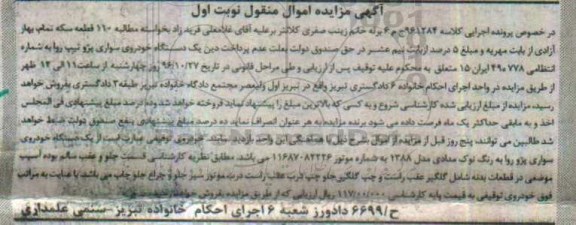 آگهی مزایده اموال منقول نوبت اول
در خصوص پرونده اجرایی کلاسه ۹۶۱۲۸۴ج م ۶ برله خانم زینب صفری کلانتر برعلیه آقای غلامعلی فرید زاد بخواسته مطالبه ۱۱۰ قطعه سکه تمام بهار
آزادی از بابت مهریه و مبلغ ۵ درصد از بابت نیم عشر در حق صندوق دولت بعلت عدم پرداخت دین یک دستگاه خودروی سواری پژو تیپ روا به شماره
انتظامی ۷۷۸ ایران ۱۵ متعلق به محکوم علیه توقیف پس از ارزیابی و طی مراحل قانونی در تاریخ ۹۶/۱۰/۲۷ روز چهارشنبه از ساعت ۱۱ الی ۱۲ ظهر
از طریق مزایده در واحد اجرای احکام خانواده ۶ دادگستری تبریز واقع در تبریز اول ولیعصر مجتمع دادگاه خانواده تبریز طبقه ۳ دادگستری بفروش خواهد
رسید، مزایده از مبلغ ارزیابی شده کارشناسی شروع و به کسی که بالاترین مبلغ را پیشنهاد نماید فروخته خواهد شد و ده درصد مبلغ پیشنهادی فی المجلس
اخذ و به مابقی حداکثر یک ماه فرصت داده می شود برنده مزایده به هر عنوان انصراف نماید ده درصد مبلغ پیشنهادی بنفع صندوق دولت ضبط خواهد
شد طالبین می توانند پنج روز قبل از مزایده از اموال بشرح ذیل با هماهنگی این واحد بازدید نمایند. خودروی توقیفی عبارت است از یک دستگاه خودروی
سواری پژو روا به رنگ نوک مدادی مدل ۱۳۸۸ به شماره موتور ۱۱۶۸۷۰۸۲۲۲۶ می باشد مطابق نظریه کارشناسی قسمت جلو و عقب سالم بوده آسیب
موضعی در قطعات بدنه شامل گلگیر عقب راست و چپ گلگیر جلو چپ درب عقب راست درب موتور سپر جلو و چراغ جلو چپ می باشد، با عنایت به مراتب
فوق خودروی توقیفی به قیمت پایه کارشناسی ریال ارزیابی که از طریق مزایده بفروش خواهد
ح/۶۶۹۹ دادورز شعبه ۶ اجرای احکام خانواده تبریز- علمداری